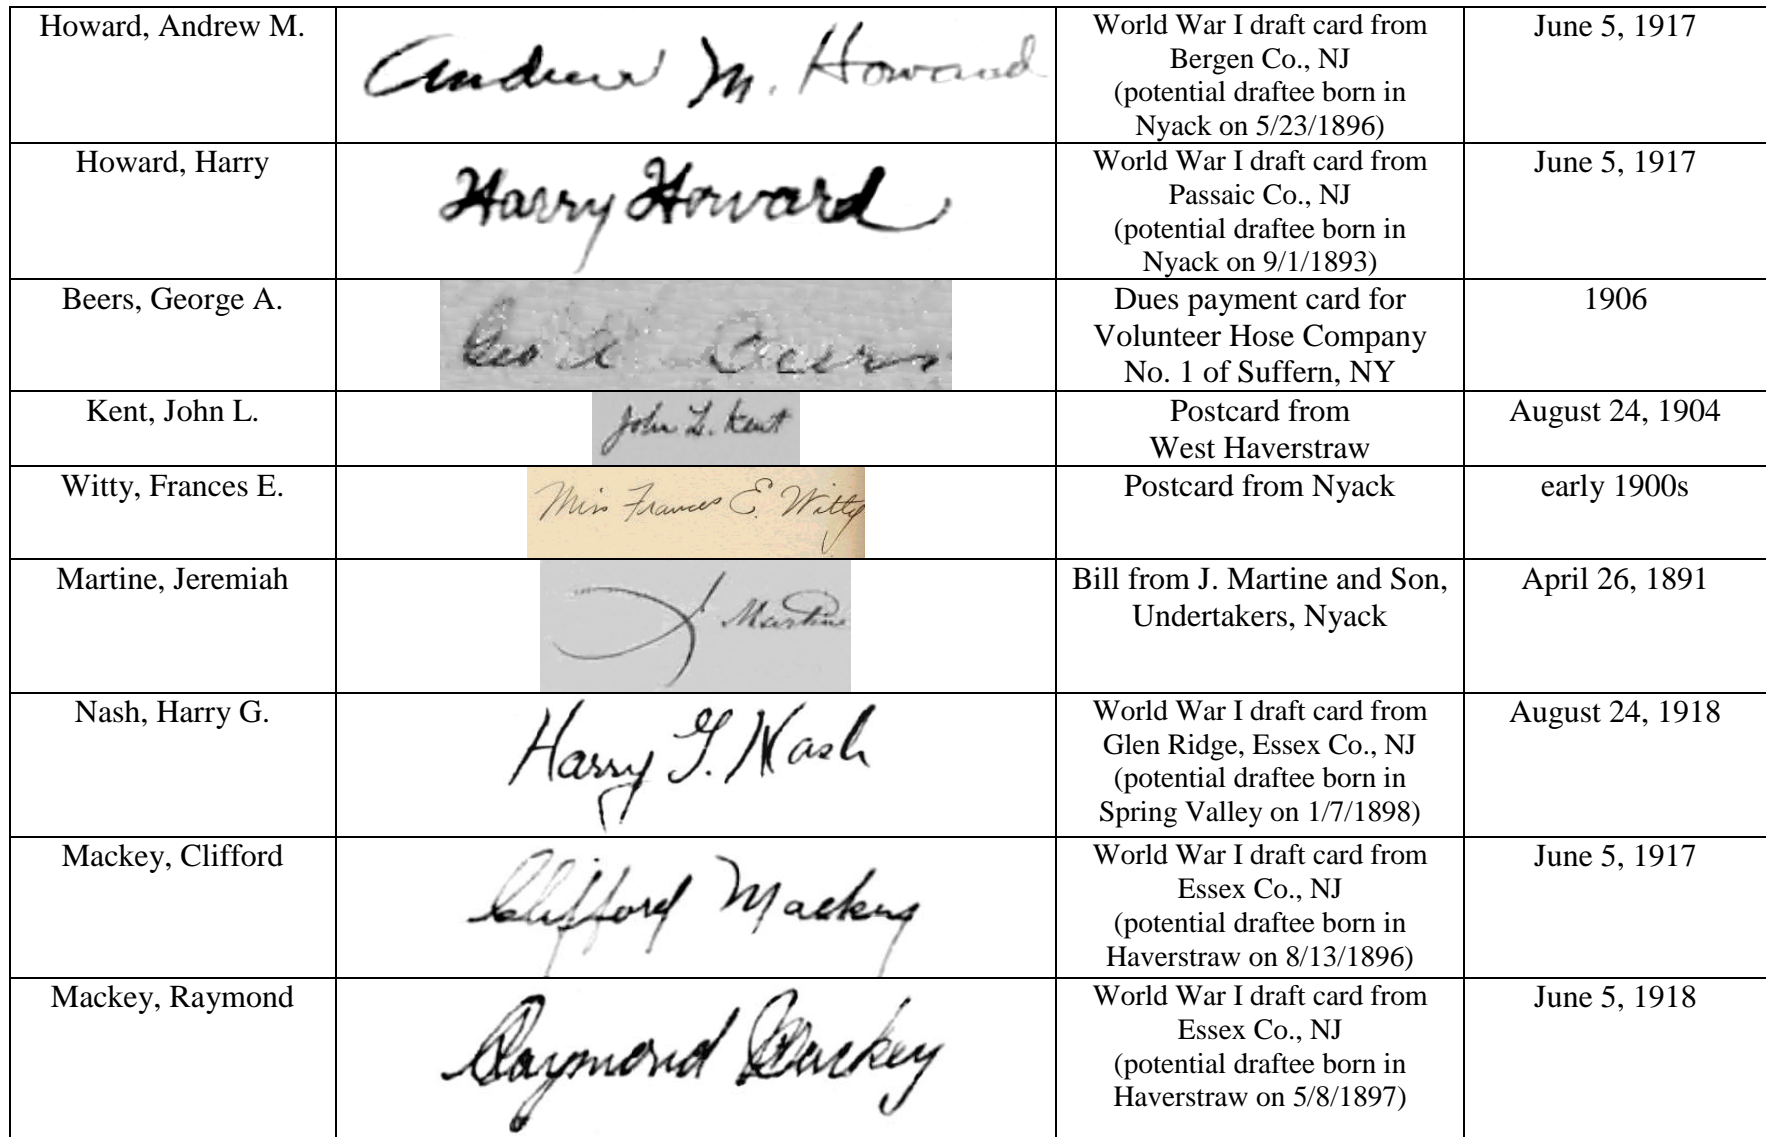 Howard, Andrew M.
Andrew M. Howard
World War I draft card from
Bergen Co., NJ
(potential draftee born in
Nyack on 5/23/1896)
June 5, 1917
Howard, Harry
Harry Howard
World War I draft card from
Passaic Co., NJ
(potential draftee born in
Nyack on 9/1/1893)
June 5, 1917
Beers, George A.
Geo A Beers
Dues payment card for
Volunteer Hose Company
No. 1 of Suffern, NY
1906
Kent, John L.
John L. Kent
Postcard from
West Haverstraw
August 24, 1904
Witty, Frances E.
Miss Frances E. Witty
Postcard from Nyack
early 1900s
Martine, Jeremiah
J Martine
Bill from J. Martine and Son,
Undertakers, Nyack
April 26, 1891
Nash, Harry G.
Harry G. Nash
World War I draft card from
Glen Ridge, Essex Co., NJ
(potential draftee born in
Spring Valley on 1/7/1898)
August 24, 1918
Mackey, Clifford
Clifford Mackey
World War I draft card from
Essex Co., NJ
(potential draftee born in
Haverstraw on 8/13/1896)
June 5, 1917
Mackey, Raymond
Raymond Mackey
World War I draft card from
Essex Co., NJ
(potential draftee born in
Haverstraw on 5/8/1897)
June 5, 1918